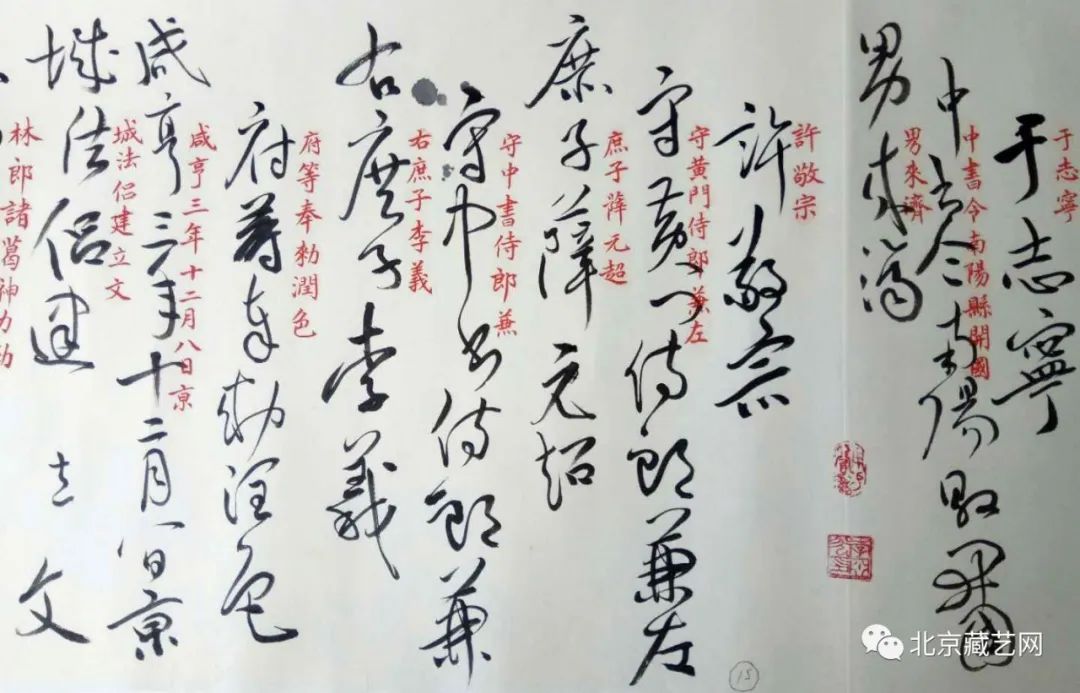 于志寧
于志寧
中書令南陽縣開國
中書令南陽縣開國
男來濟
男來濟
許敬宗
許敬宗
守黄門侍郎兼左
守黄門侍郎兼左
庶子薛元超
庶子薛元超
守中書侍郎兼
守中書侍郎兼
右庶子李義
右庶子李義
府等奉勑潤色
府等奉勑潤色
咸亨三年十二月八日京
咸亨三年十二月八日京
城法侣建立文
城法侣建立文
林郎諸葛神力
15
北京藏艺网